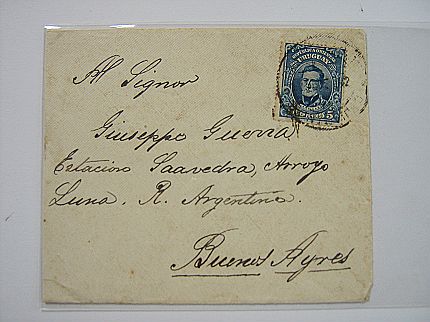 REPUBLICA ORIENTAL
URUGUAY
5
Al Signor
Giuseppe Guerra
Estacion Saavedra, Arroyo
Luna. R. Argentina.
Buenos Ayres